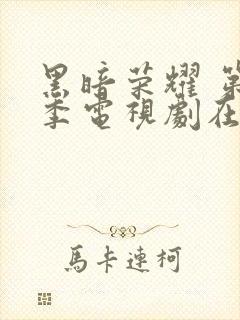 黑暗荣耀
季電視劇在
馬卡連柯